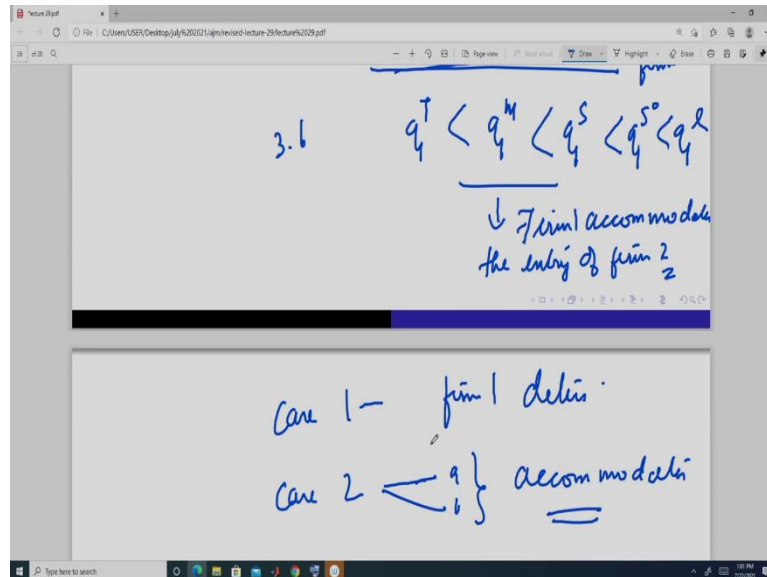 *lecture 29.pdf
File | C:/Users/USER/Desktop/july%202021/ajm/revised-lecture-29/lecture%2029.pdf
of 28
Page view
Read aloud
Draw
Highlight
Erase
3.6 q₁ᵀ < q₁ᴹ < q₁ˢ < q₁ˢ⁰ < q₁ˡ
↓ Firm 1 accommodates
the entry of firm 2
Case 1 – firm 1 deters.
Case 2 a } accommodates
b
Type here to search
1:01 PM